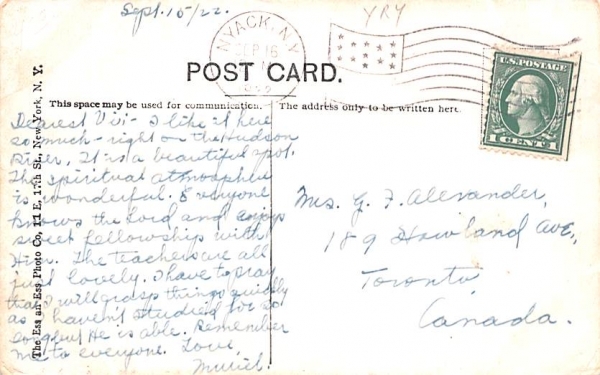 Sept. 15/22.
YRY
NYACK, N.Y.
SEP 16
1922
U.S. POSTAGE
1 CENT 1
POST CARD.
This space may be used for communication.
The address only to be written here.
The Ess an Ess Photo Co. 11 E. 17th St., New York, N. Y.
Dearest Vivi- I like it here
so much- right on the Hudson
River. It is a beautiful spot.
The spiritual atmosphere
is wonderful. Everyone
knows the Lord and enjoys
sweet fellowship with
Him. The teachers are all
just lovely. I have to pray
that I will grasp things quickly
as I haven't studied for so
long but He is able. Remember
me to everyone. Love,
Muriel.
Mrs. G. F. Alexander,
189 Howland Ave.,
Toronto,
Canada.